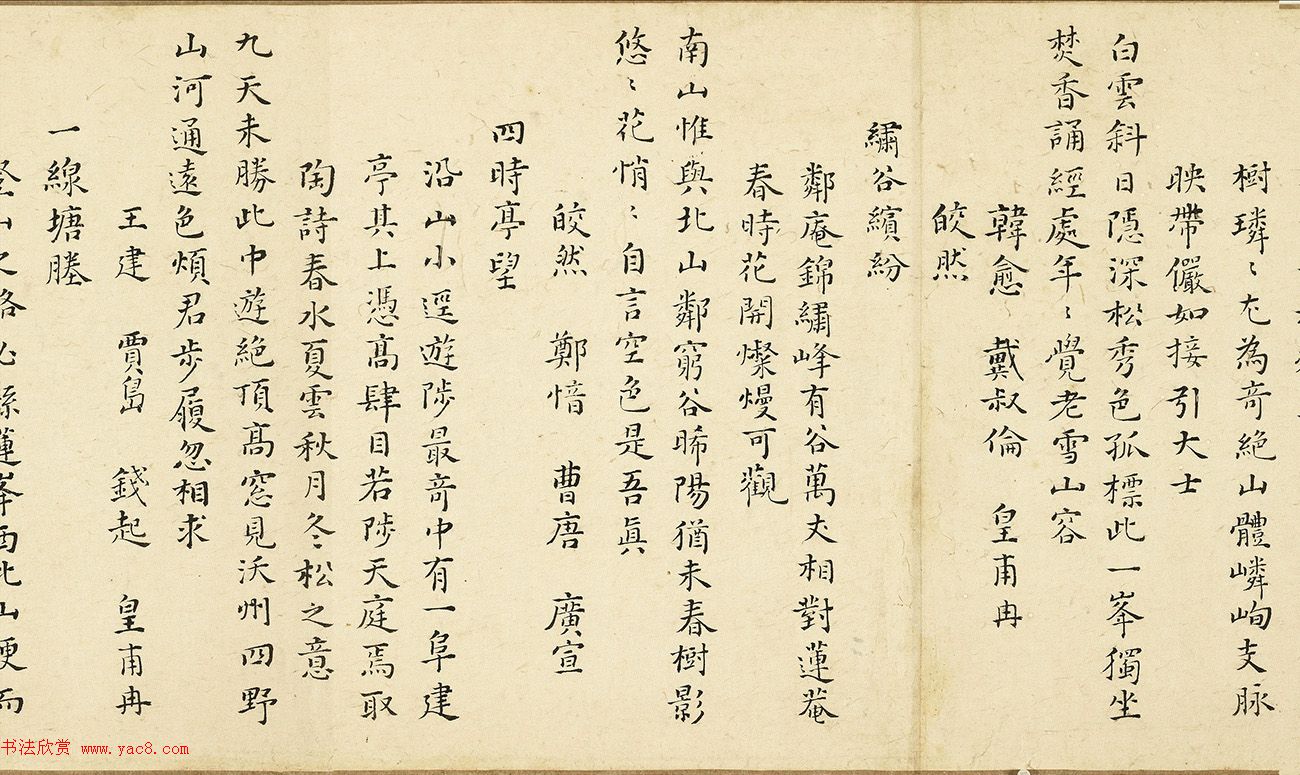 樹璘〻尤為奇絕山體嶙峋支脉
映帶儼如接引大士
白雲斜日隱深松秀色孤標此一峯獨坐
焚香誦經處年〻覺老雪山容
韓愈 戴叔倫 皇甫冉
皎然
繡谷繽紛
鄰庵錦繡峰有谷萬丈相對蓮菴
春時花開燦熳可觀
南山惟與北山鄰窮谷晞陽猶未春樹影
悠〻花悄〻自言空色是吾真
皎然 鄭愔 曹唐 廣宣
四時亭望
沿山小逕遊陟最奇中有一阜建
亭其上憑高肆目若陟天庭焉取
陶詩春水夏雲秋月冬松之意
九天未勝此中遊絕頂高窓見沃州四野
山河通遠色煩君步履忽相求
王建 賈島 錢起 皇甫冉
一線塘塍
登山之路必繇蓮峯西北山硬而
书法欣赏 www.yac8.com